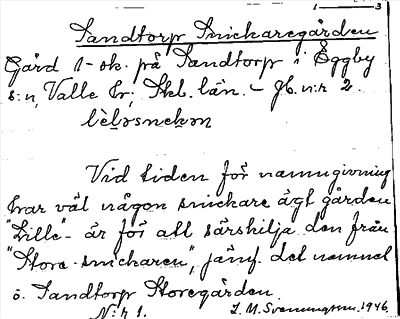 1 3
Sandtorp Snickaregården
Gård 1-ok. på Sandtorp i Eggby
s:n, Valle hr; Skbl. län. - Jb. n:r 2.
Vid tiden för namngivning
har väl någon snickare ägt gården
"Lille"- är för att särskilja den från
"Store-snickaren", jämf. det namnet
ö. Sandtorp Storegården
N:r 1. 1946.